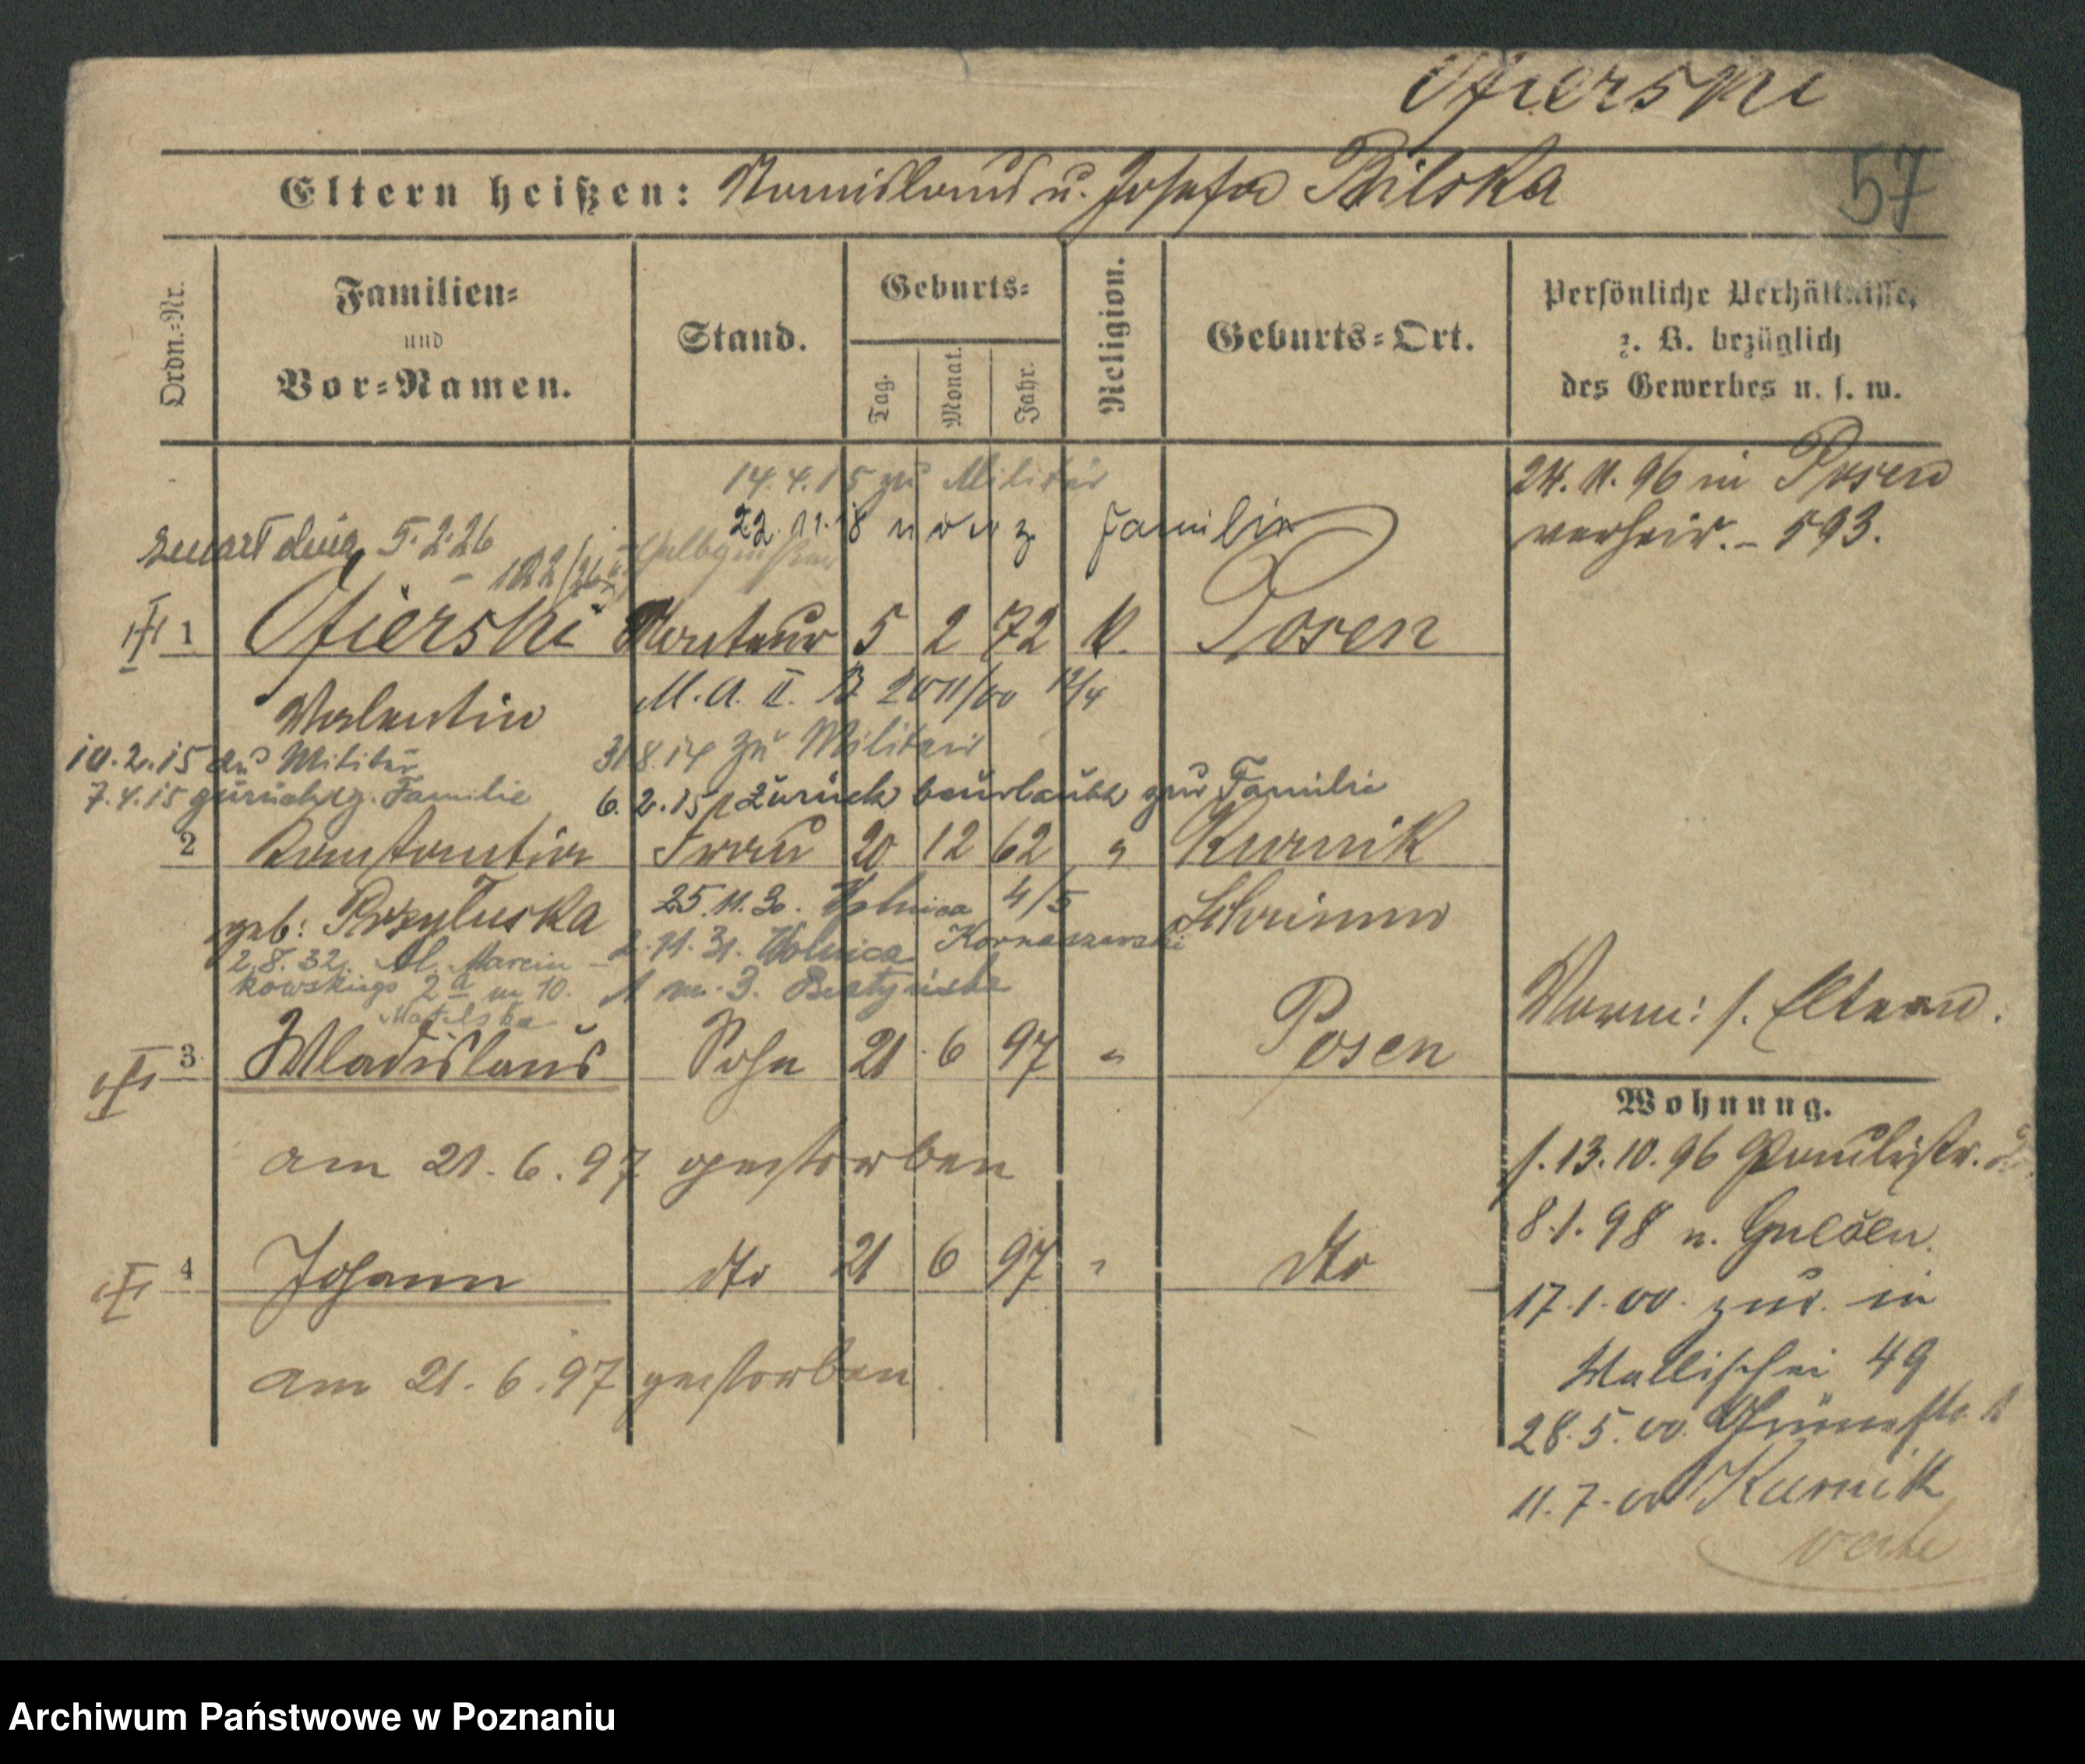 Ofierski
57
Eltern heißen: Stanislaus u. Josefa Bilska
Ordn.-Nr.
Familien-
und
Vor-Namen.
Stand.
Geburts-
Tag.
Monat.
Jahr.
Religion.
Geburts-Ort.
Persönliche Verhältnisse,
z. B. bezüglich
des Gewerbes u. s. w.
24. 11. 96 in Posen
verheir. - 593.
14. 4. 15 zu Militär
22. 11. 18 Familie
zmarł dnia 5. 2. 26
122/26
1 Ofierski Monteur 5 2 72 k. Posen
Valentin M. A. II. B 2011/00 12/4
10. 2. 15 zu Militär
31 8. 14 zu Militär
7. 4. 15 zurück z. Familie
6. 2. 15 zurück beurlaubt zur Familie
2 Konstantia Frau 20 12 62 " Kurnik
geb: Przyluska
Schrimm
25. 11. 30. Wolnica 4/5
2. 11. 31. Wolnica Kornaszewski
2. 8. 32. Al. Marcin-
kowskiego 2a m 10.
1 m. 3.
3 Wladislaus Sohn 21 6 97 " Posen
am 21. 6. 97 gestorben
4 Johann dto 21 6 97 " dto
am 21. 6. 97 gestorben
Vorm: s. Eltern.
Wohnung.
s. 13. 10. 96 Paulistr.
8. 1. 98 n. Gnesen.
17. 1. 00. zur. in
Wallischei 49
28. 5. 00.
11. 7. 00 Kurnik
verte
Archiwum Państwowe w Poznaniu